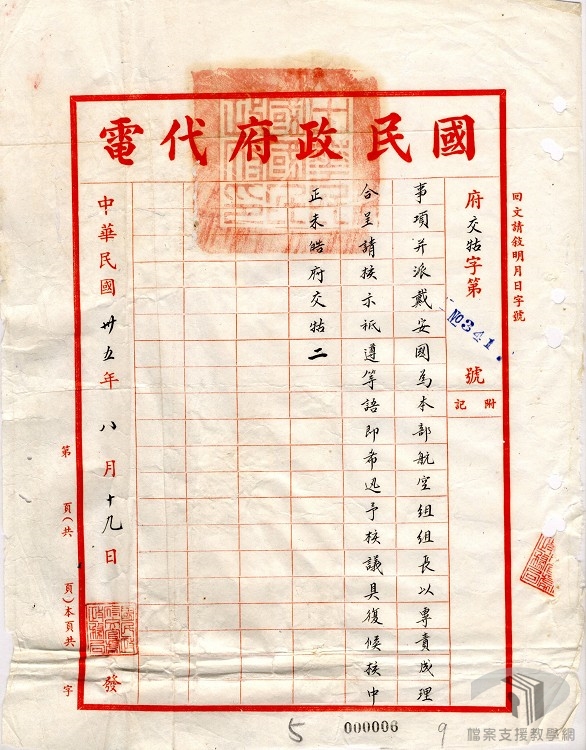 國民政府代電
回文請敘明月日字號
府交牯字第 號
No 341
附記
事項并派戴安國為本部航空組組長以專責成理
合呈請核示祇遵等語即希迅予核議具復候核中
正未皓府交牯二
中華民國卅五年八月十九日 發
第 頁(共 頁)本頁共 字
5
000006
9
檔案支援教學網